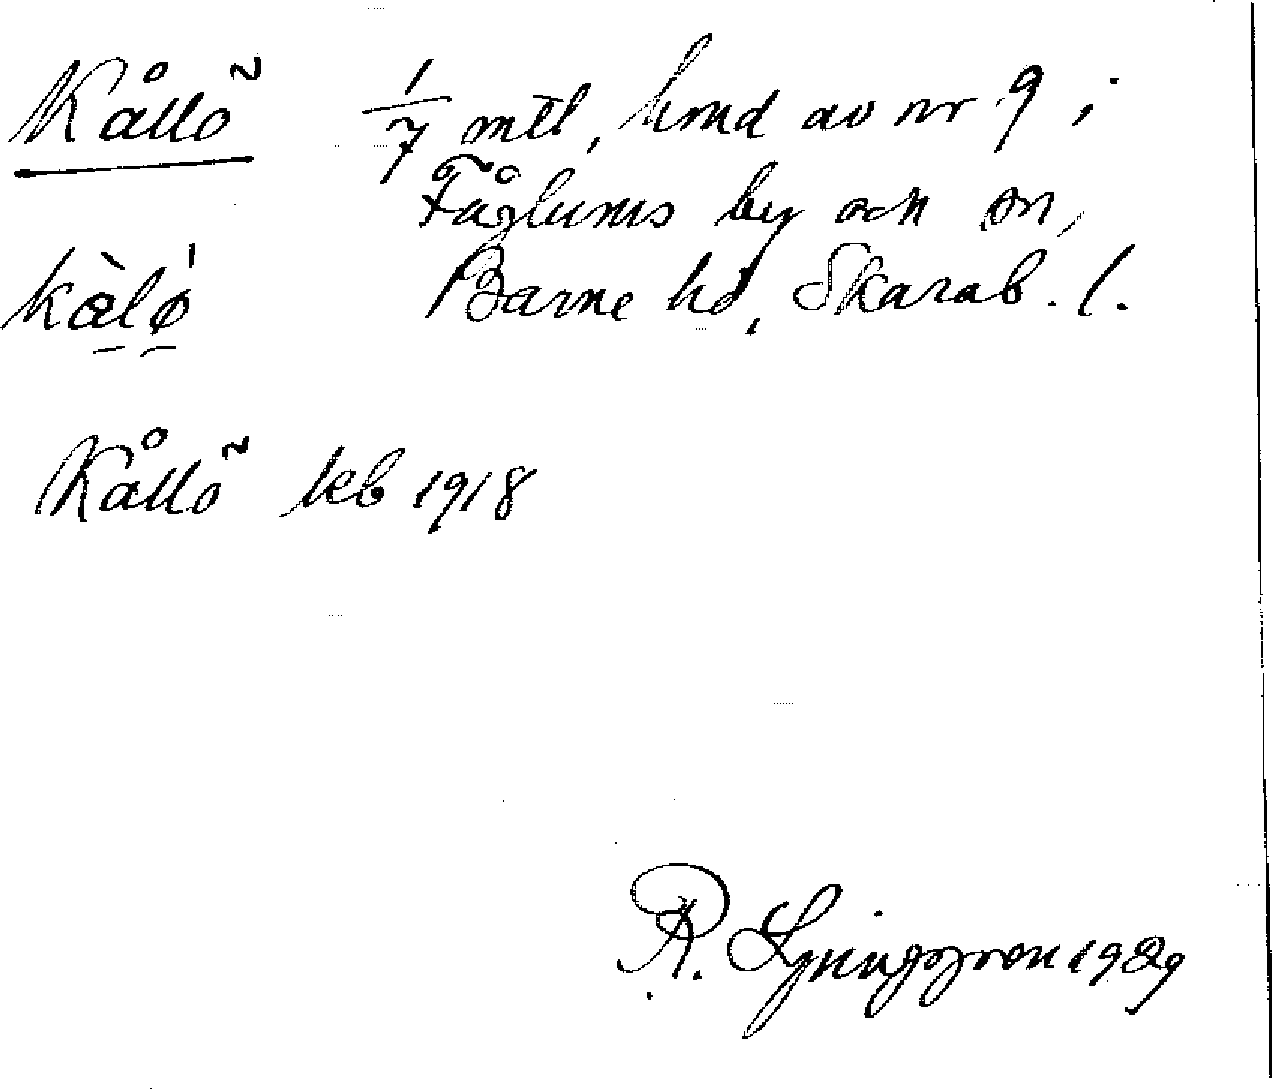 Kållö 1/7 mtl, hmd av nr 9 i
Fåglums by och sn,
kàlǿ Barne hd, Skarab. l.
Kållö leb 1918
R. Ljunggren 1929